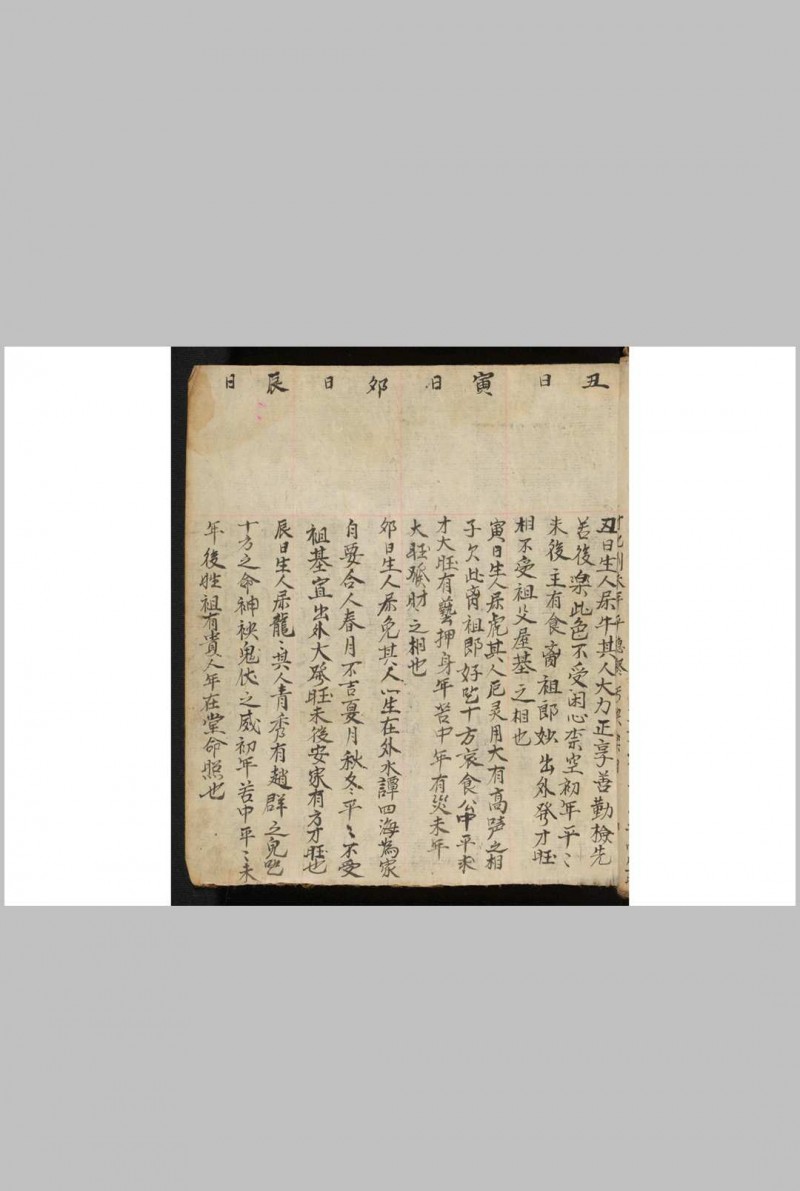 丑日
寅日
夘日
辰日
丑日生人屬牛其人大力正享善勤檢先
苦後樂此色不受困心柰空初年平〻
末後主有食齋祖郎妙出外発才旺
相不受祖父屋基之相也
寅日生人屬虎其人厄灵用大有高声之相
子欠此齋祖郎好吃十方衣食公中平求
才大旺有藝押身年苦中年有災未年
大旺發財之相也
夘日生人屬免其人心生在外水譚四海為家
自要合人春月不吉夏月秋冬平〻不受
祖基宜出外大發旺未後安家有方才旺也
辰日生人屬龍〻其人青秀有趙群之兒吃
十方之命神袂鬼伏之威初年苦中平〻未
年後姓祖有貴人年在堂命照也